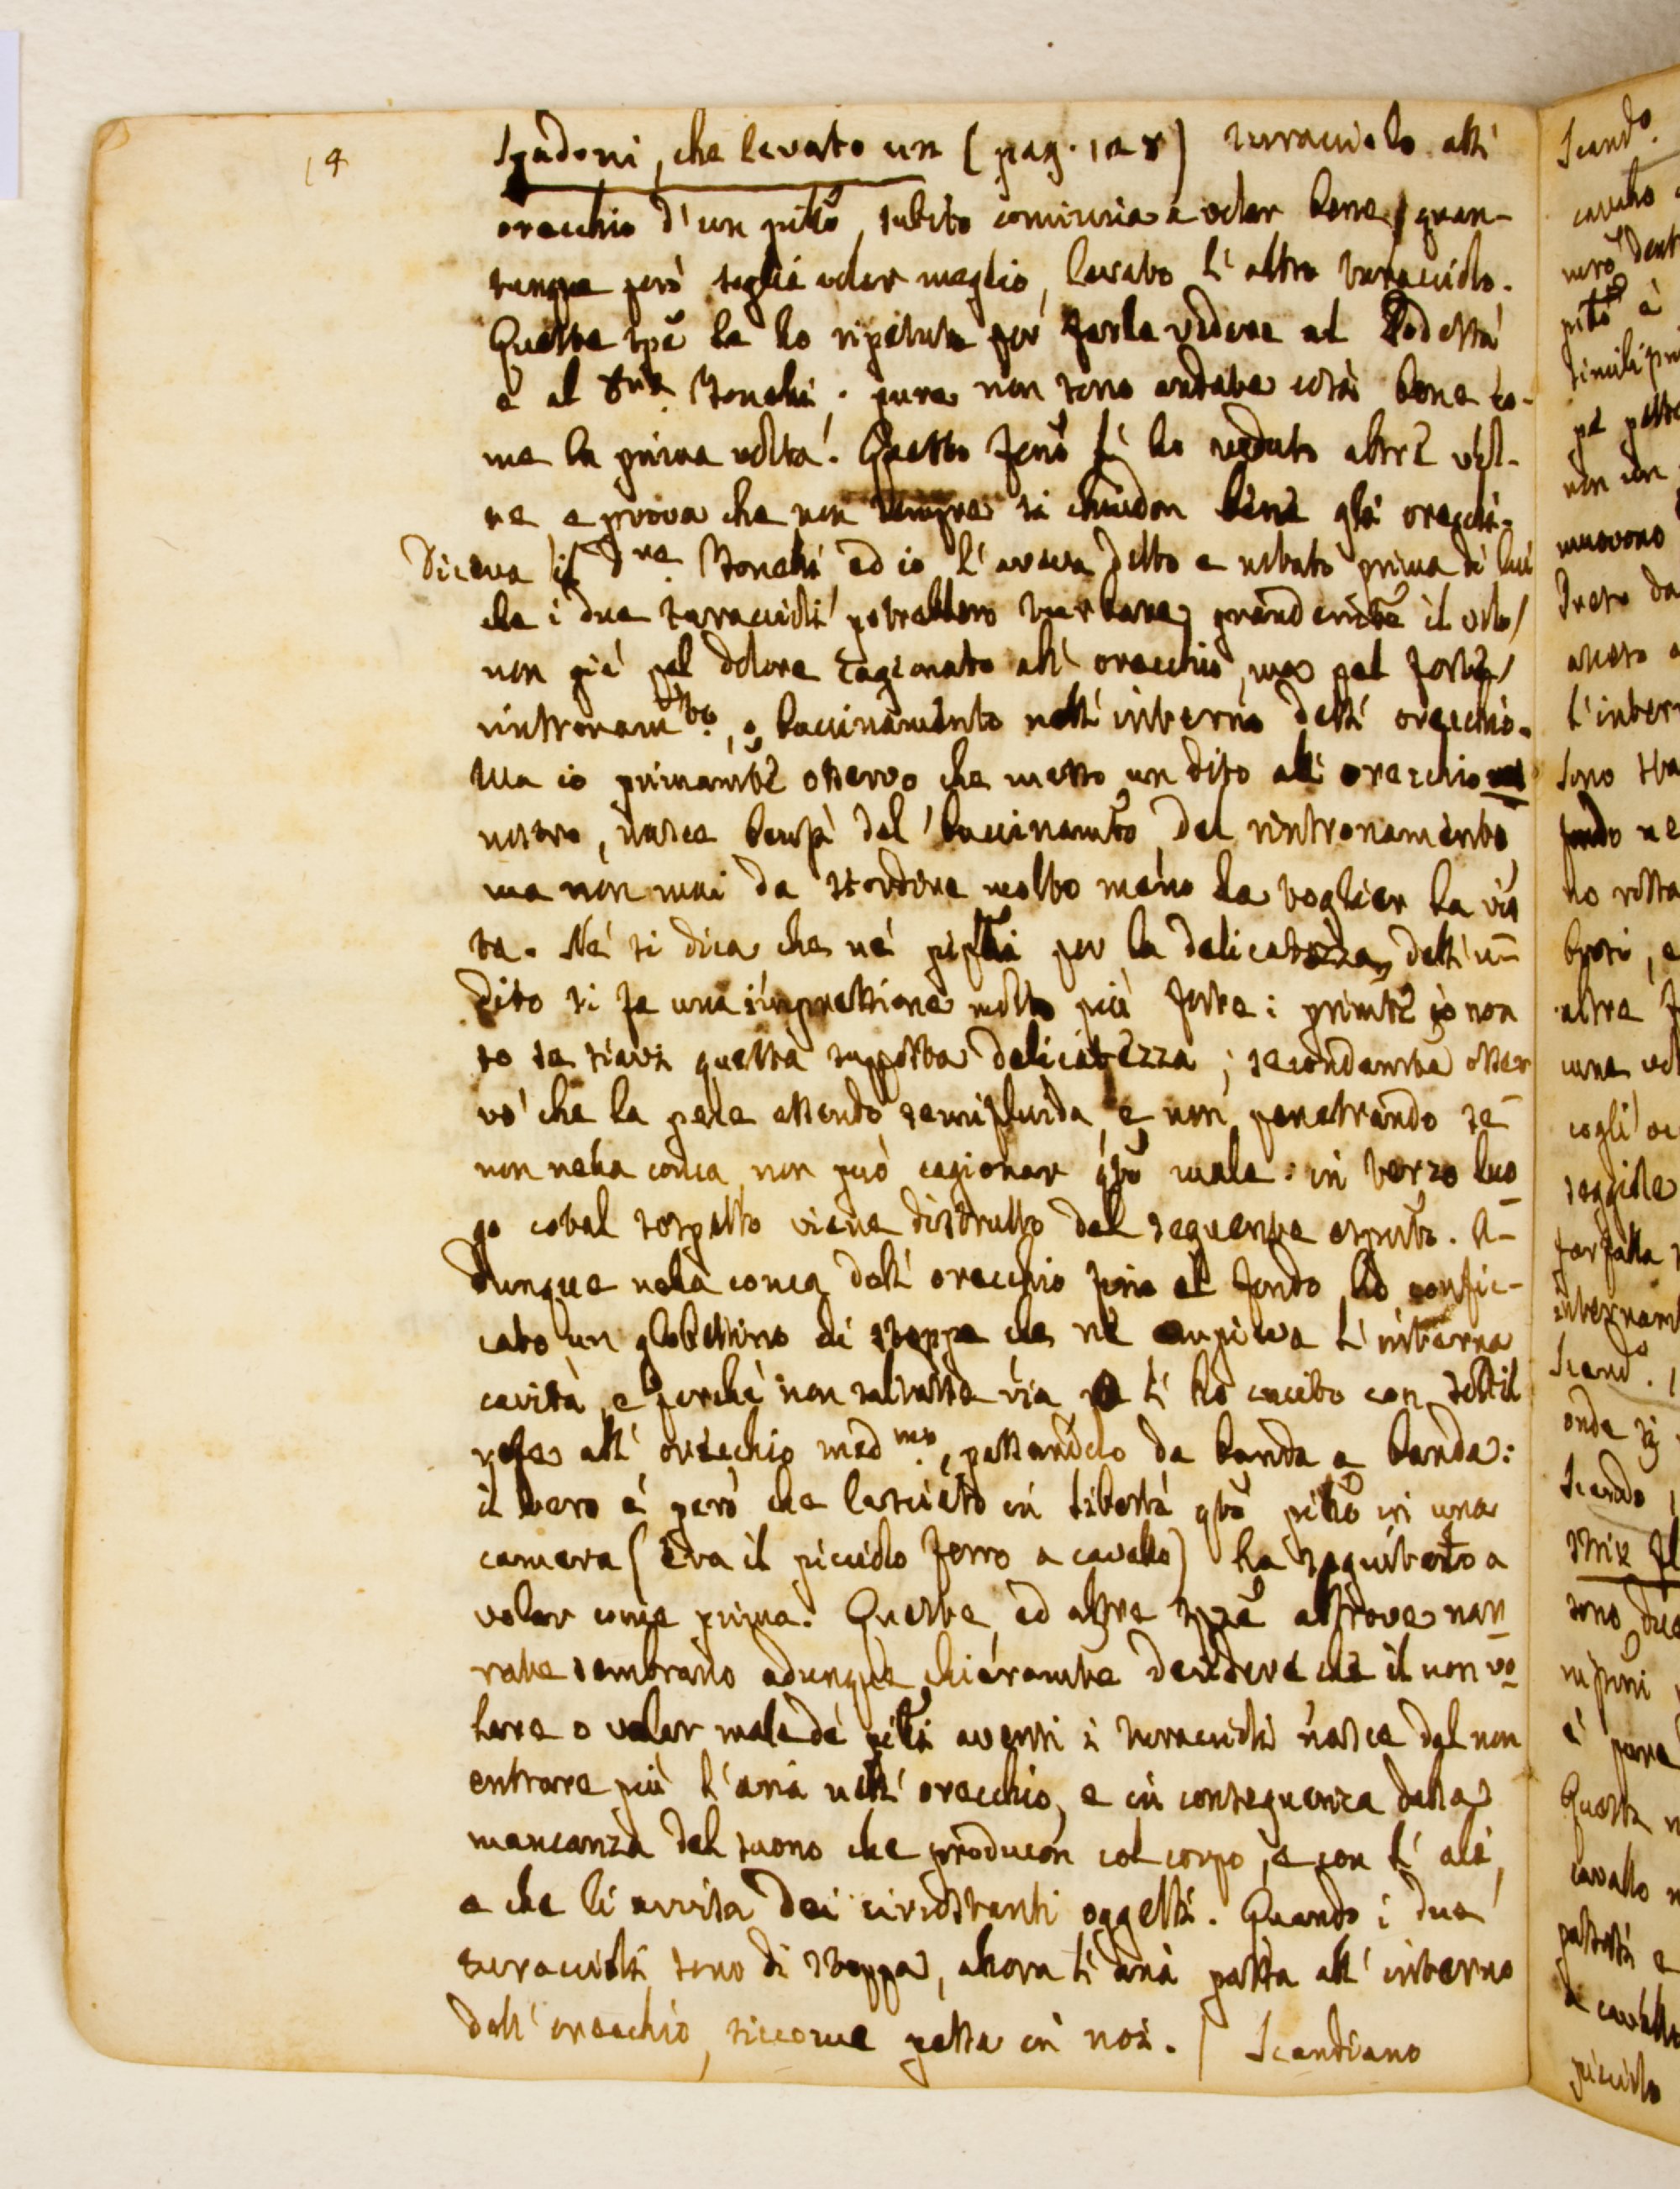 14
Spadoni, che levato un (pag. 128) turacciolo all'
orecchio d'un pillo, subito comincia a volar bene, quan-
tunque però soglia volar meglio, levato l'altro turacciolo.
Queste spē le ho ripetute per farle vedere al Podestà
e al Sr. Stonchi. pure non sono andate così bene co-
me la prima volta. Questo fenō l'ho veduto altre vol-
te e prova che non sempre si chiudon bene gli orecchi.
Diceva il Sre. Stonchi, ed io l'aveva detto e notato prima di lui
che i due turaccioli potrebbero turbare grandemte il volo
non già pel dolore cagionato all'orecchio, ma pel forte
rintronamto, o buccinamento nell'interno dell'orecchio.
Ma io primamte osservo che messo un dito all'orecchio
nostro, nasce bensì del buccinamto, del rintronamento
ma non mai da stordire molto meno da toglier la vis
ta. Né si dica che né pipilli per la delicatezza dell'u-
dito si fa una impressione molto più forte: primte io non
so se siavi questa supposta delicatezza; secondamte osser
vo che la pece essendo semifluida, e non penetrando se
non nella conca, non può cagionar qto male: in terzo luo
go cotal sospetto viene distrutto dal seguente esprmto. A-
dunque nella conca dell'orecchio fino al fondo ho confic-
cato un globettino di stoppa che ne empiva l'interna
cavità, e perché non saltasse via l'ho cucito con sottil
refe all'orecchio medmo, passandolo da banda a banda:
il vero è però che lasciato in libertà qto pillo in una
camera (era il picciolo ferro a cavallo) ha seguitato a
volar come prima. Queste, ed altre spē altrove nar
rate sembrano adunque chiaramte decidere che il non vo
lare o volar male de pilli aventi i turaccioli nasce dal non
entrare più l'aria nell'orecchio, e in conseguenza dalla
mancanza del suono che producon col corpo, e con l'ali,
e che li avvisa dei circostanti oggetti. Quando i due
turaccioli sono di stoppa, allora l'aria passa all'interno
dell'orecchio, siccome passa in noi. / Scandiano